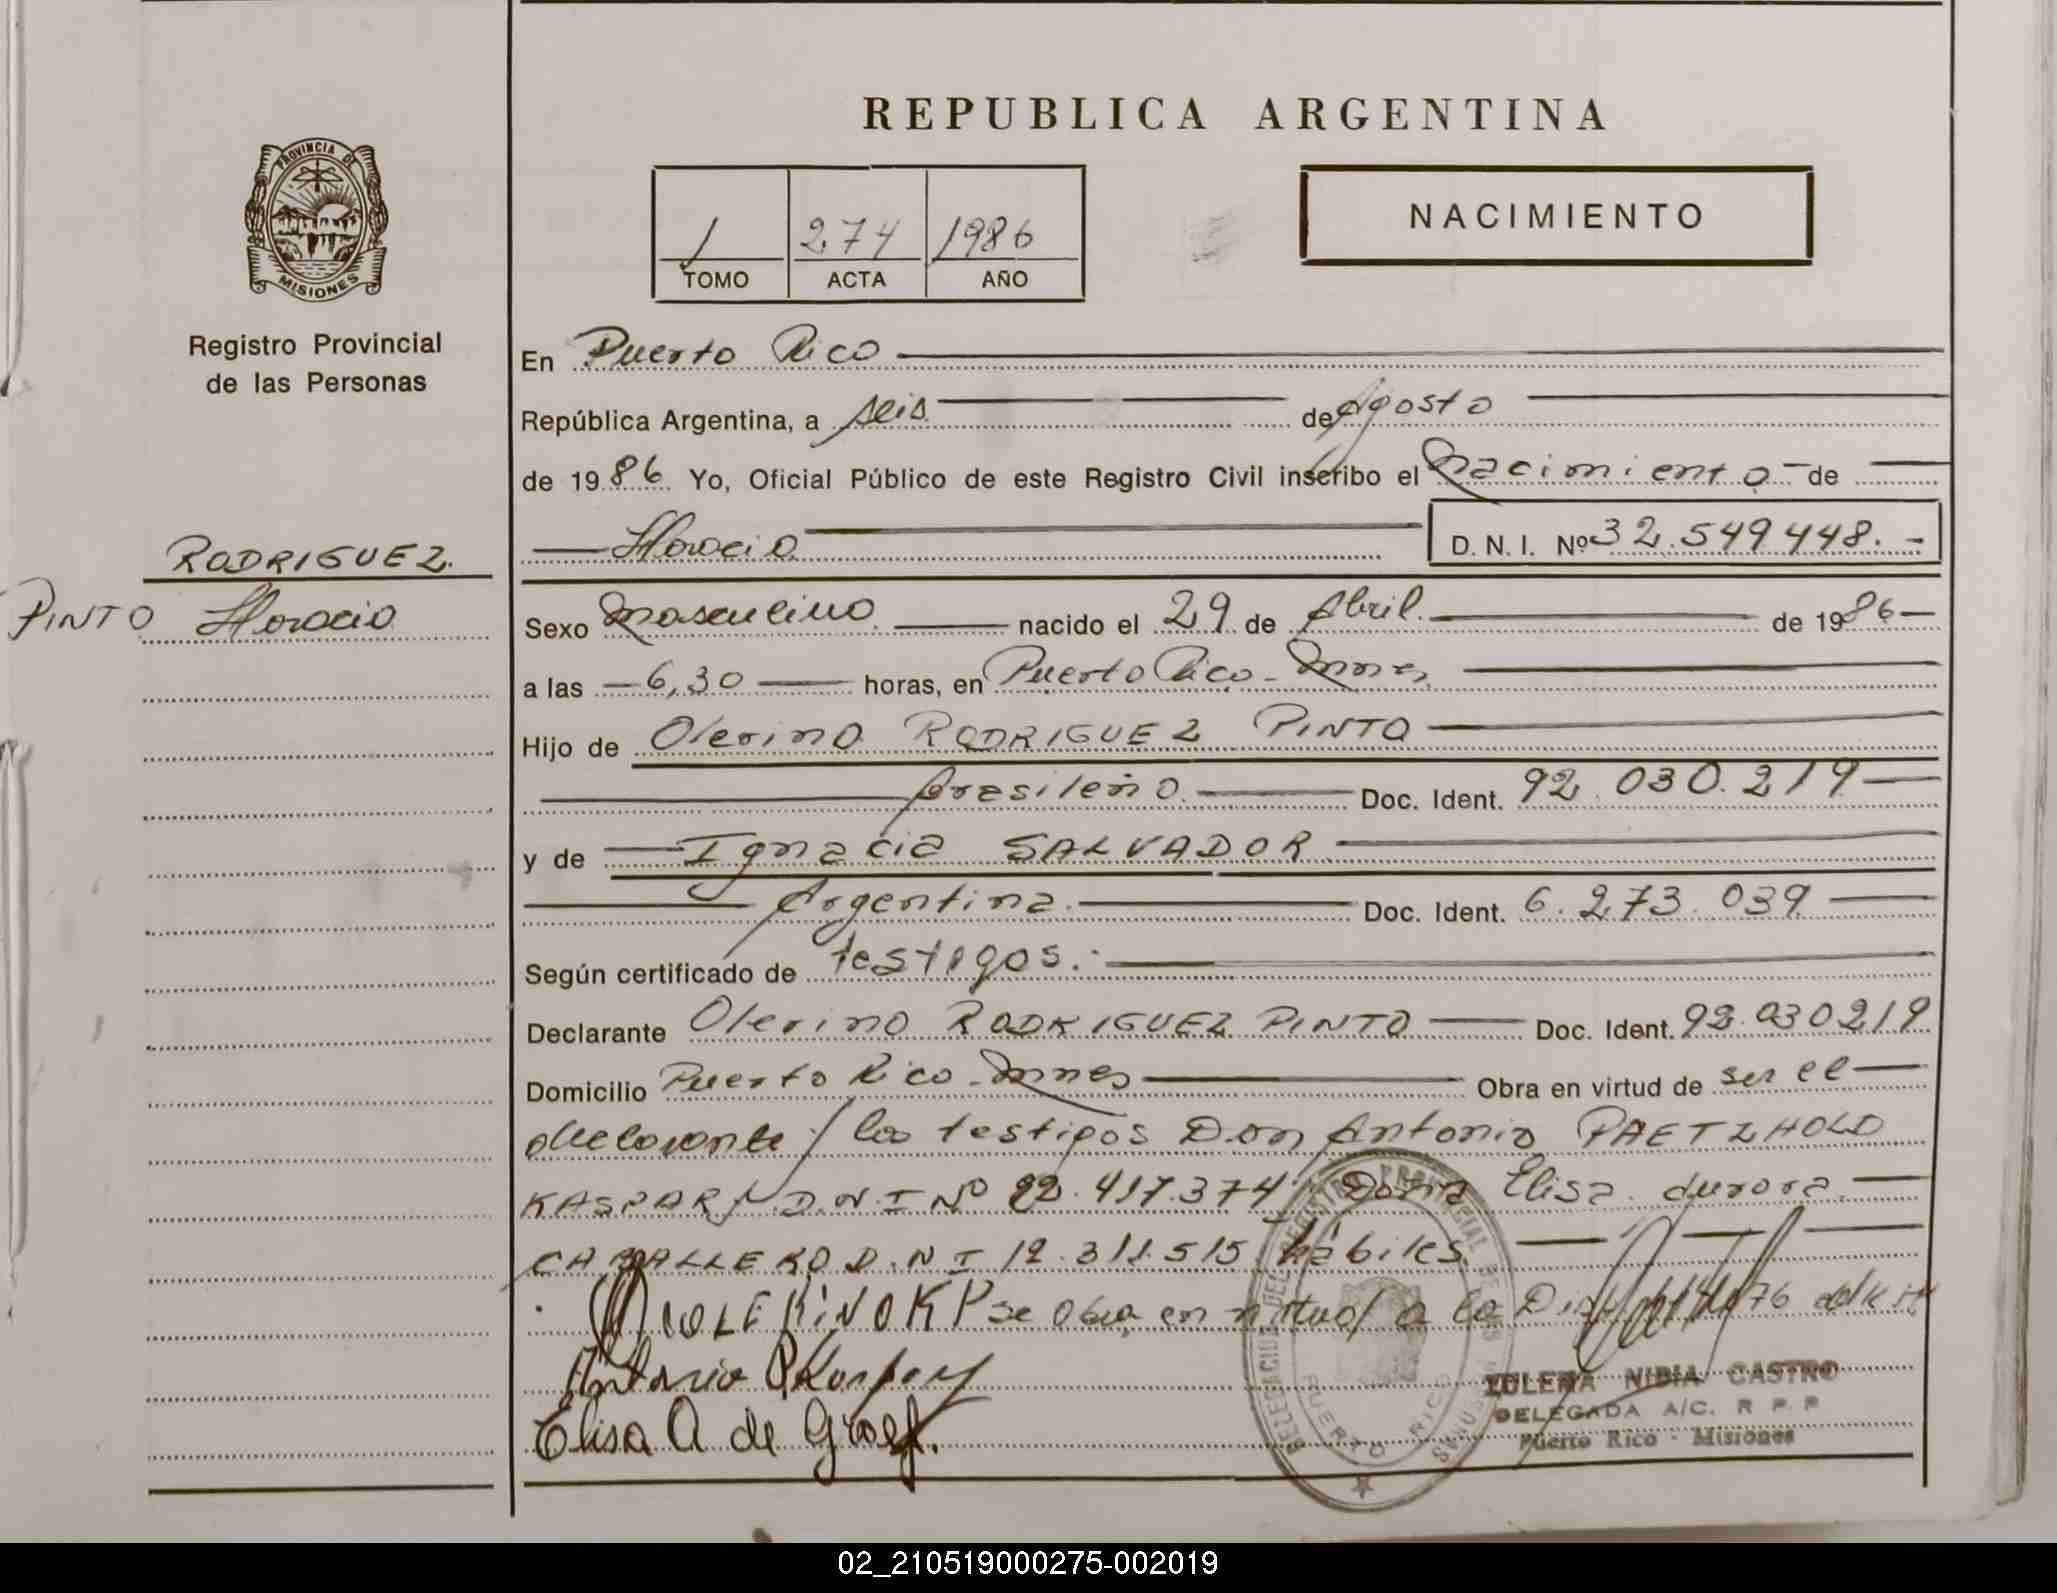 REPUBLICA ARGENTINA
PROVINCIA DE
MISIONES
1 274 1986
TOMO ACTA AÑO
NACIMIENTO
Registro Provincial
de las Personas
RODRIGUEZ.
PINTO Horacio
En Puerto Rico
República Argentina, a seis de Agosto
de 1986 Yo, Oficial Público de este Registro Civil inscribo el nacimiento - de
Horacio D. N. I. Nº 32.549448. -
Sexo masculino nacido el 29 de Abril. de 1986
a las 6,30 horas, en Puerto Rico - Mnes,
Hijo de Olerino RODRIGUEZ PINTO
brasileño. Doc. Ident. 92.030.219
y de Ignacia SALVADOR
Argentina. Doc. Ident. 6.273.039
Según certificado de testigos. -
Declarante Olerino RODRIGUEZ PINTO Doc. Ident. 92.030219
Domicilio Puerto Rico - Mnes Obra en virtud de ser el
declarante / los testigos Don Antonio PAETZHOLD
KASPARY D.N.I Nº 92.417.374 Doña Elisa Aurora
CABALLERO D.N.I 12.311.515 hábiles.
OLERINO R P se obra en virtud a la
Antonio P Kaspary
Elisa A de Groef.
DELEGACION DEL REGISTRO PROVINCIAL DE LAS PERSONAS
PUERTO RICO
ZULEMA NIDIA CASTRO
DELEGADA A/C. R P P
Puerto Rico - Misiones
02_210519000275-002019